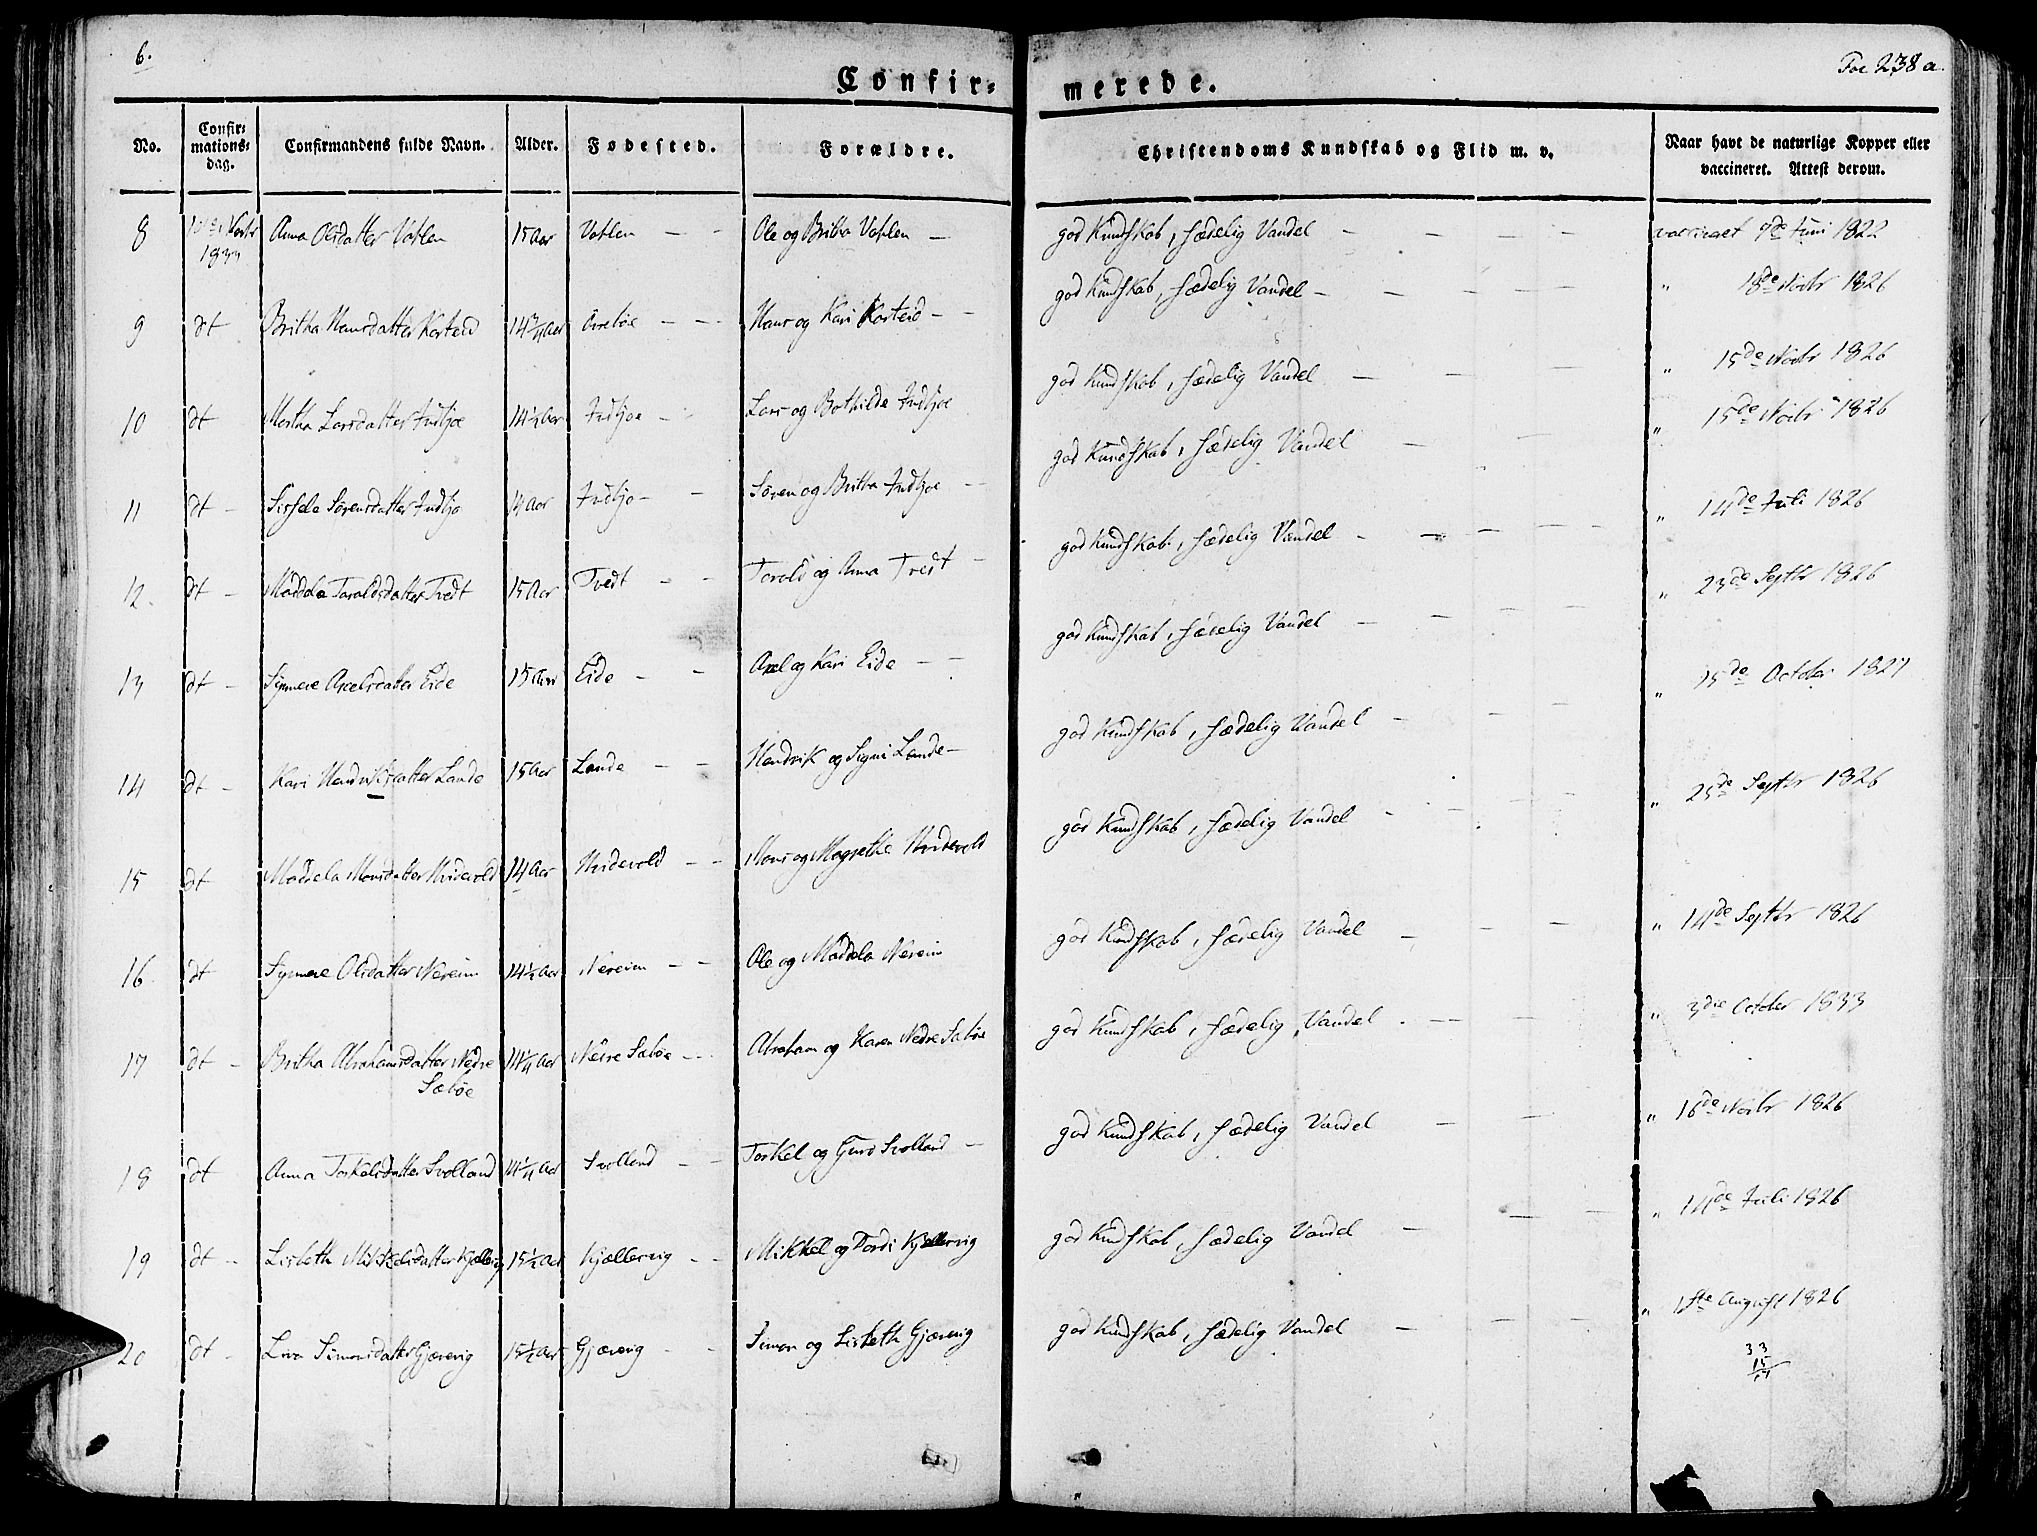 6.
Foe 238 a.
Confir=
merede.
No.
Confir=
mations=
dag.
Confirmandens fulde Navn.
Alder.
Fødested.
Forældre.
Christendoms Kundskab og Flid m. v.
Naar havt de naturlige Kopper eller
vaccineret. Attest derom.
8 1833 Anna Olsdatter Vatlen 15 Aar Vatlen — — Ole og Britha Vatlen — god Kundskab, sædelig Vandel — vaccineret 7de Juni 1822
9 dt Britha Hansdatter 14 Aar — — Hans og Kari — god Kundskab, sædelig Vandel — " 18de Novbr 1826
10 dt Martha Larsdatter Indhjoe 14½ Aar Indhjoe — Lars og Bothilde Indhjoe god Kundskab, sædelig Vandel — " 15de Novbr 1826
" 15de Novbr 1826
11 dt Sissela Sørensdatter Indhjo 14 Aar Indhjo — Søren og Britha Indhjoe — god Kundskab, sædelig Vandel — " 14de Juli 1826
12. dt Maddela Taraldsdatter Tvedt 15 Aar Tvedt — Tarald og Anna Tvedt — god Kundskab, sædelig Vandel — " 23de Septbr 1826
13 dt Synneve Axelsdatter Eide 15 Aar Eide — Axel og Kari Eide — god Kundskab, sædelig Vandel — " 15de October 1827
14 dt Kari Hendriksdatter Lande 15 Aar Lande — Hendrik og Signi Lande — god Kundskab, sædelig Vandel — " 25de Septbr 1826
15 dt Maddela Monsdatter Hvidevold 14 Aar Hvidevold — Mons og Magrethe Hvidevold god Kundskab, sædelig Vandel — " 14de Septbr 1826
16 dt Synneve Olsdatter Nereim 14½ Aar Nereim — Ole og Maddela Nereim god Kundskab, sædelig Vandel — " 3die October 1833
17 dt Britha Abrahamsdatter Nedre
Sæbøe 14¼ Aar Nedre Sæbøe — Abraham og Karen Nedre Sæbøe god Kundskab, sædelig Vandel — " 16de Novbr 1826
18 dt Anna Torkelsdatter Svolland 14¼ Aar Svolland — Torkel og Guro Svolland — god Kundskab, sædelig Vandel — " 14de Juli 1826
19 dt Lisbeth Mikkelsdatter 15½ Aar Kjællervig — Mikkel og Tordi Kjællervig god Kundskab, sædelig Vandel — " 1ste August 1826
20 dt Siva Simonsdatter Gjærevig 15½ Aar Gjærevig — Simon og Lisbeth Gjærevig god Kundskab, sædelig Vandel —
33
15